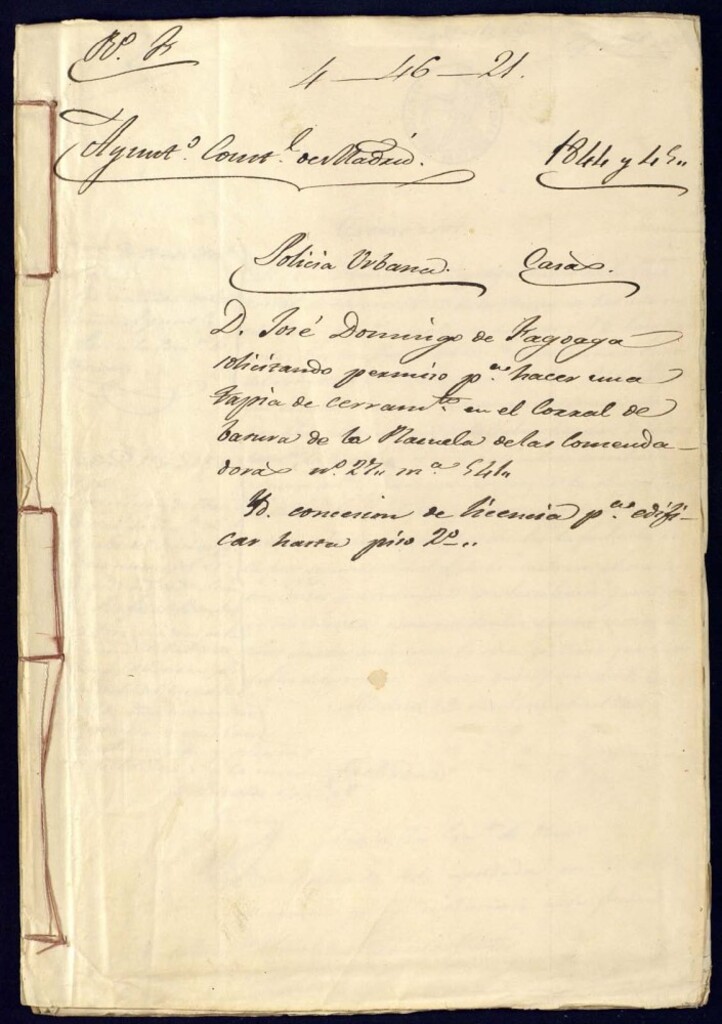 4-46-21.
Ayunt.º Const.l de Madrid. 1844 y 45,,
Policia Urbana. Casas.
D. José Domingo de Fagoaga
solicitando permiso p.ª hacer una
tapia de cerram.to en el Corral de
basura de la Plazuela de las Comenda-
doras nº. 27,, m.ª 541,,
Yd. concesion de licencia p.ª edifi-
car hasta piso 2º..